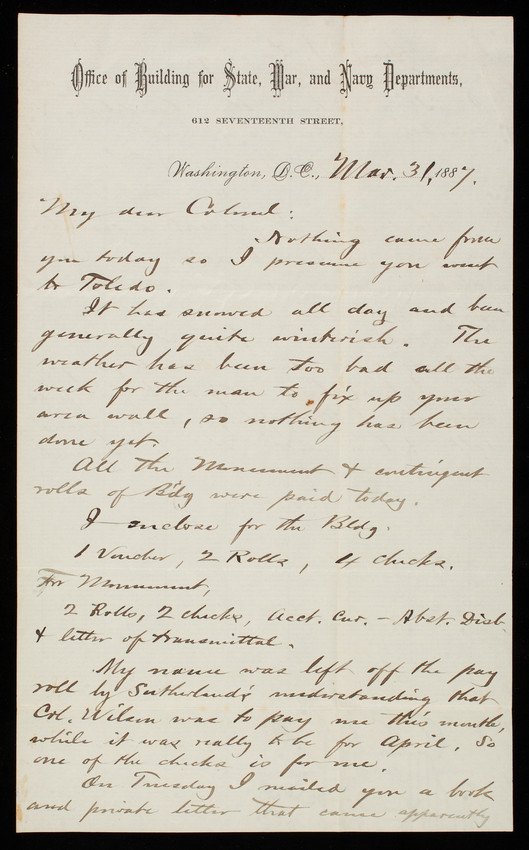 Office of Building for State, War, and Navy Departments,
612 SEVENTEENTH STREET,
Washington, D.C., Mar. 31, 1887.
My dear Colonel:
Nothing came from
you today so I presume you went
to Toledo.
It has snowed all day and been
generally quite winterish. The
weather has been too bad all the
week for the man to fix up your
area wall, so nothing has been
done yet.
All the Monument & contingent
rolls of Bdg were paid today.
I enclose for the Bldg.
1 Voucher, 2 Rolls, 4 checks.
For Monument,
2 Rolls, 2 checks, Acct. Cur. - Abst. Disb.
& letter of transmittal.
My name was left off the pay
roll by Sutherland's understanding that
Col. Wilson was to pay me this month,
while it was really to be for April. So
one of the checks is for me.
On Tuesday I mailed you a book
and private letter that came apparently